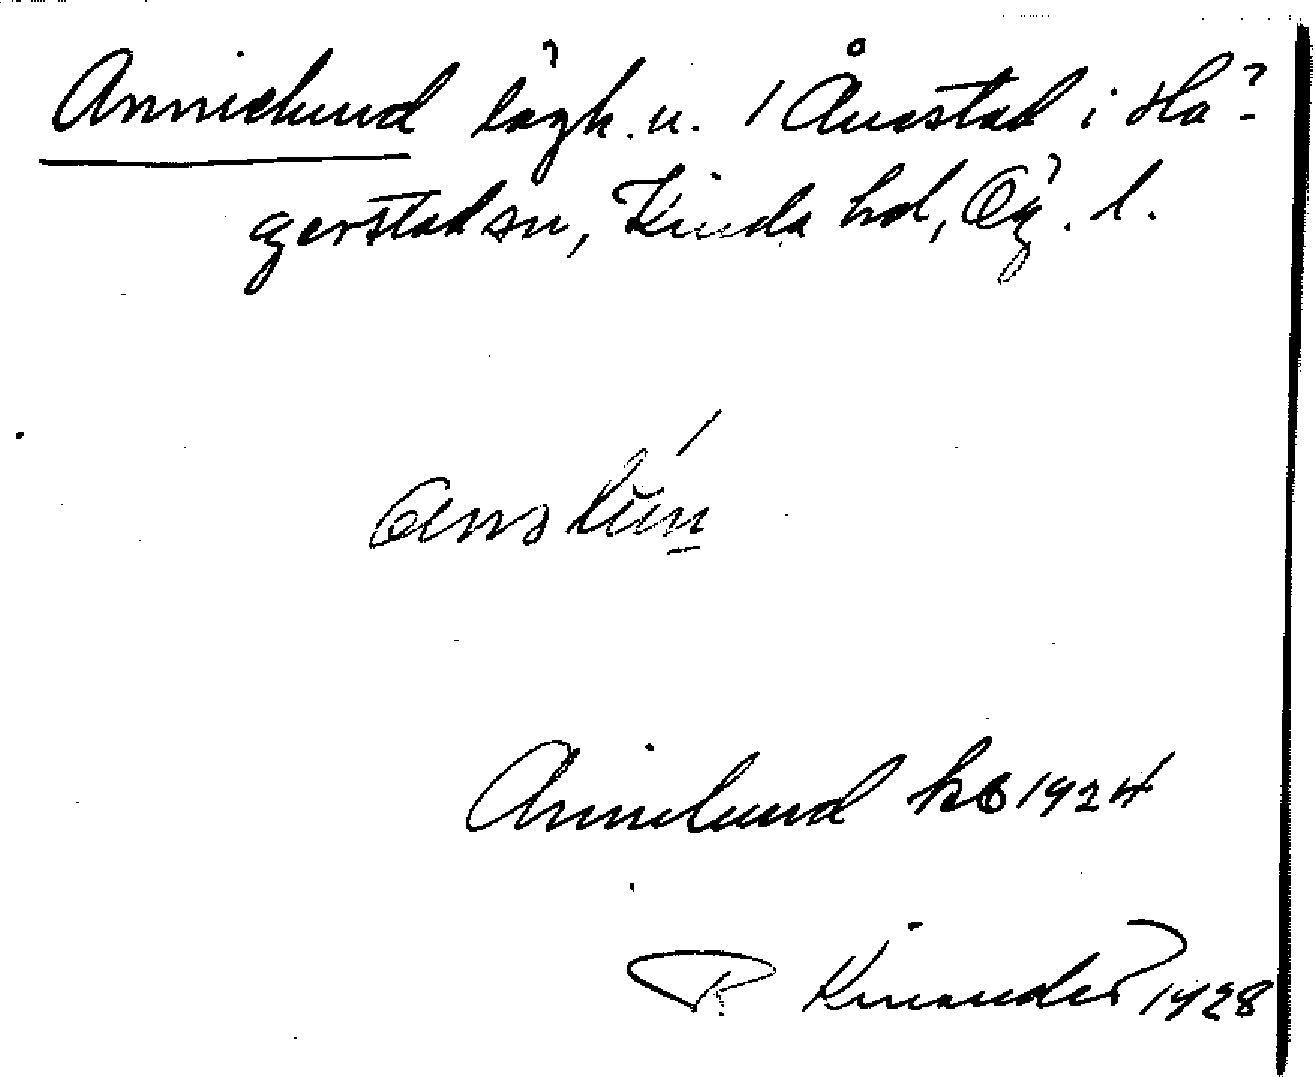 Annielund lägh. u. 1 Ånestad i Hä-
gerstad sn, Kinda hd, Ög. l.
Annilund kb 1924
R Kinander 1928